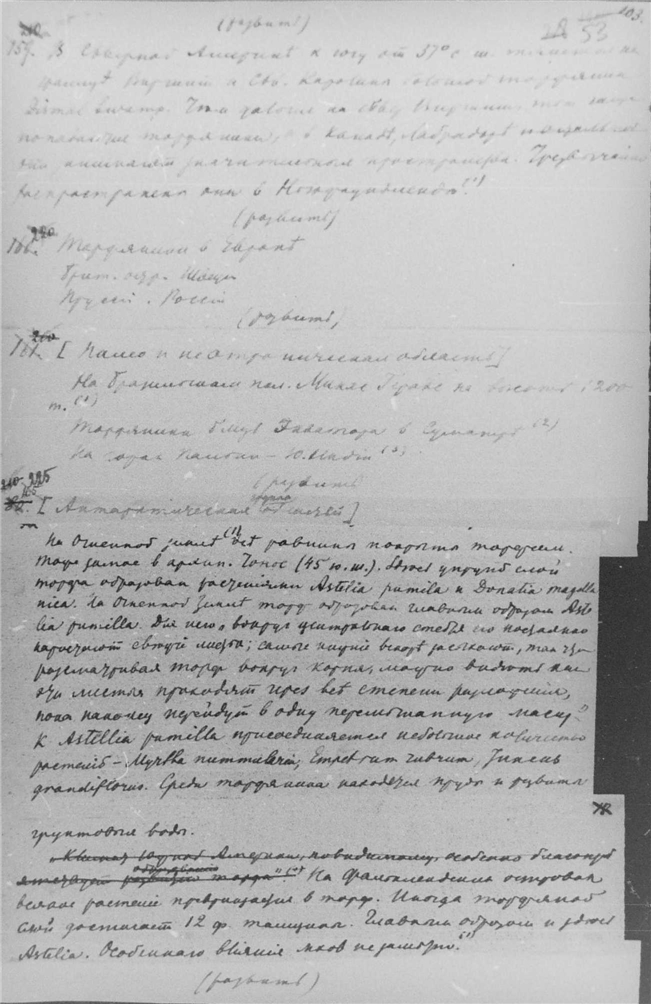 (развить)
103.
53
159. В Северной Америке к югу от 37° с. ш. тянется на
границе Виргинии и Сев. Каролины большой торфяник
Dismal Swamp.
торфяники, а в Канаде, Лабрадоре и
они занимают значительные пространства. Чрезвычайно
распространены они в Ньюфаундленде. (1)
(развить)
160. Торфяники в Европе
Брит. остр. Швеция
Пруссия. Россия
(развить)
161. [Палео и неотропическая область]
На Бразильском пл. Минас Герас на высоте 1200
m. (1)
Торфяники близ Экватора в Суматре (2)
На горах Пальни – Ю. Индии (3).
(развить)
225
[Антарктическая область]
На Огненной земле (1) все равнины покрыты торфом.
Тоже самое в архип. Чонос (45 ю. ш.). Здесь упругий слой
торфа образован растениями Astelia pumila и Donatia magella
nica. На Огненной Земле торф образован главным образом Aste
lia pumilla. Для него, вокруг центрального стебля его постоянно
нарастают свежие листья; самые нижние вскоре засыхают, так что
рассматривая торф вокруг корня, можно видеть как
эти листья проходят через все степени разложения,
пока наконец перейдут в одну перемешанную массу."
К Astellia pumilla присоединяется небольшое количество
растений – Myrtha nummularia, Empetrum rubrum, Juncus
grandiflorus. Среди торфяника находятся пруды и развиты
грунтовые воды.
„Климат Южной Америки, повидимому, особенно благопри
образованию
ятствует развитию торфа" (2) На Фалкландских островах
всякое растение превращается в торф. Иногда торфяной
слой достигает 12 ф. толщины. Главным образом и здесь
Astelia. Особенного влияния мхов не заметно. (3)
(развить)